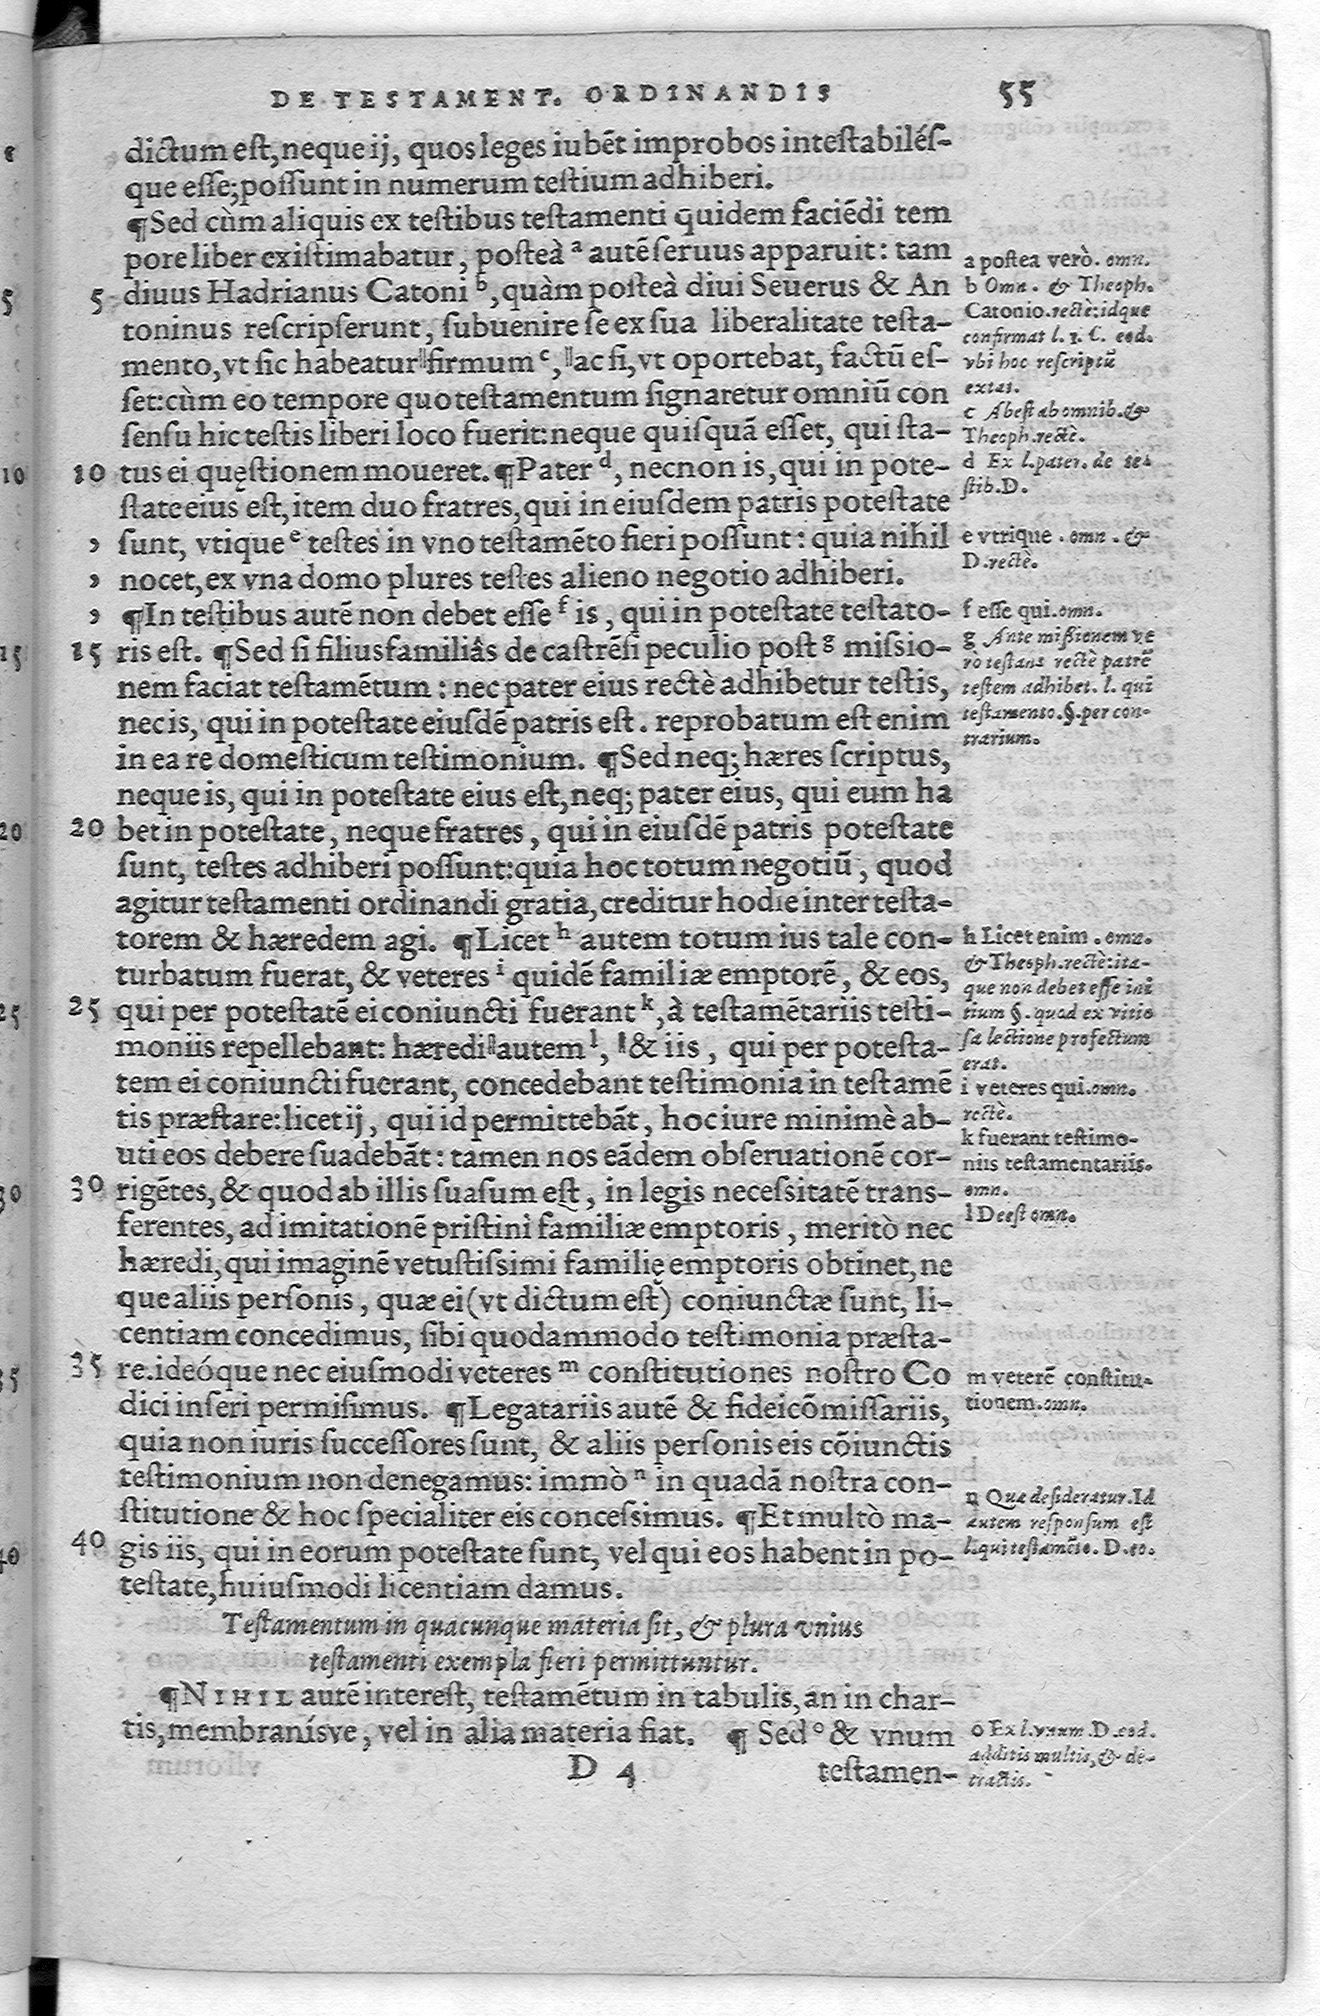 DE TESTAMENT. ORDINANDIS 55
dictum est, neque ij, quos leges iubēt improbos intestabilés-
que esse; possunt in numerum testium adhiberi.
¶Sed cùm aliquis ex testibus testamenti quidem faciēdi tem
pore liber existimabatur, posteà a autē seruus apparuit: tam
5 diuus Hadrianus Catoni b, quàm posteà diui Seuerus & An
toninus rescripserunt, subuenire se ex sua liberalitate testa-
mento, vt sic habeatur ‖firmum c, ‖ac si, vt oportebat, factū es-
set: cùm eo tempore quo testamentum signaretur omniū con
sensu hic testis liberi loco fuerit: neque quisquā esset, qui sta-
10 tus ei quęstionem moueret. ¶Pater d, necnon is, qui in pote-
state eius est, item duo fratres, qui in eiusdem patris potestate
, sunt, vtique e testes in vno testamēto fieri possunt: quia nihil
, nocet, ex vna domo plures testes alieno negotio adhiberi.
, ¶In testibus autē non debet esse f is, qui in potestate testato-
15 ris est. ¶Sed si filiusfamiliâs de castrēsi peculio post g missio-
nem faciat testamētum: nec pater eius rectè adhibetur testis,
nec is, qui in potestate eiusdē patris est. reprobatum est enim
in ea re domesticum testimonium. ¶Sed neq; hæres scriptus,
neque is, qui in potestate eius est, neq; pater eius, qui eum ha
20 bet in potestate, neque fratres, qui in eiusdē patris potestate
sunt, testes adhiberi possunt: quia hoc totum negotiū, quod
agitur testamenti ordinandi gratia, creditur hodie inter testa-
torem & hæredem agi. ¶Licet h autem totum ius tale con-
turbatum fuerat, & veteres i quidē familiæ emptorē, & eos,
25 qui per potestatē ei coniuncti fuerant k, à testamētariis testi-
moniis repellebant: hæredi ‖autem l, ‖& iis, qui per potesta-
tem ei coniuncti fuerant, concedebant testimonia in testamē
tis præstare: licet ij, qui id permittebāt, hoc iure minimè ab-
uti eos debere suadebāt: tamen nos eādem obseruationē cor-
30 rigētes, & quod ab illis suasum est, in legis necessitatē trans-
ferentes, ad imitationē pristini familiæ emptoris, meritò nec
hæredi, qui imaginē vetustissimi familię emptoris obtinet, ne
que aliis personis, quæ ei (vt dictum est) coniunctæ sunt, li-
centiam concedimus, sibi quodammodo testimonia præsta-
35 re. ideóque nec eiusmodi veteres m constitutiones nostro Co
dici inseri permisimus. ¶Legatariis autē & fideicōmissariis,
quia non iuris successores sunt, & aliis personis eis cōiunctis
testimonium non denegamus: immò n in quadā nostra con-
stitutione & hoc specialiter eis concessimus. ¶Et multò ma-
40 gis iis, qui in eorum potestate sunt, vel qui eos habent in po-
testate, huiusmodi licentiam damus.
Testamentum in quacunque materia sit, & plura vnius
testamenti exempla fieri permittuntur.
¶NIHIL autē interest, testamētum in tabulis, an in char-
tis, membranísve, vel in alia materia fiat. ¶ Sed o & vnum
D 4 testamen-
a postea verò. omn.
b Omn. & Theoph.
Catonio. rectè: idque
confirmat l. 1. C. eod.
vbi hoc rescriptū
extat.
c Abest ab omnib. &
Theoph. rectè.
d Ex l. pater. de te-
stib. D.
e vtrique. omn. &
D. rectè.
f esse qui. omn.
g Ante missionem ve
rò testans rectè patrē
testem adhibet. l. qui
testamento. §. per con-
trarium.
h Licet enim. omn.
& Theoph. rectè: ita-
que non debet esse ini
tium §. quod ex vitio
sa lectione profectum
erat.
i veteres qui. omn.
rectè.
k fuerant testimo-
niis testamentariis.
omn.
l Deest omn.
m veterē constitu-
tionem. omn.
n Quæ desideratur. Id
autem responsum est
l. qui testamēto. D. eo.
o Ex l. vnum. D. eod.
additis multis, & de-
tractis.